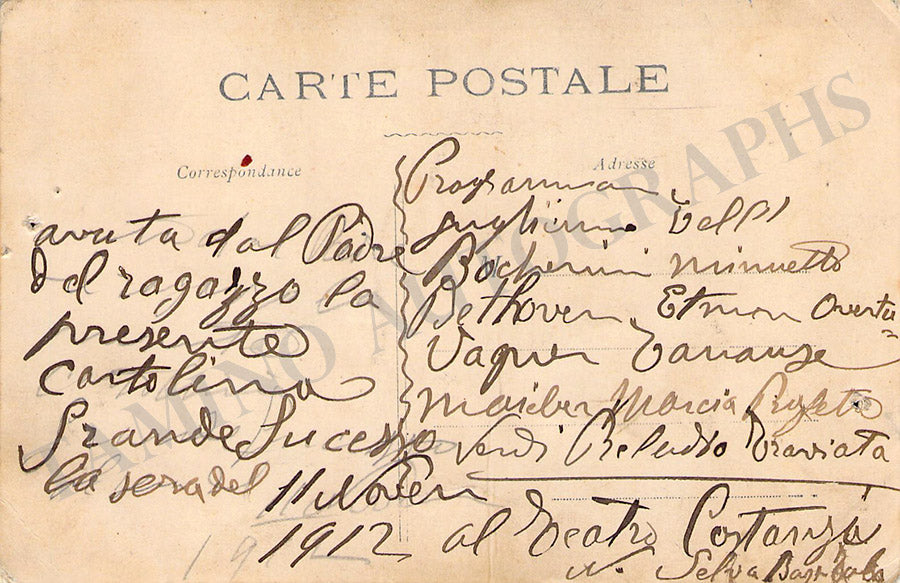 CARTE POSTALE
Correspondance
avuta dal Padre
del ragazzo la
presente
Cartolina
Grande Sucesso
la sera del
11 Noven
1912
Adresse
Programma
guglielmo Tell
Bocherini Minuetto
Bethoven Etmon Overtu=
Vagner Tanause
Marcia
Verdi Preludio Traviata
al Teatro Costanzi
Selva
TAMINO AUTOGRAPHS